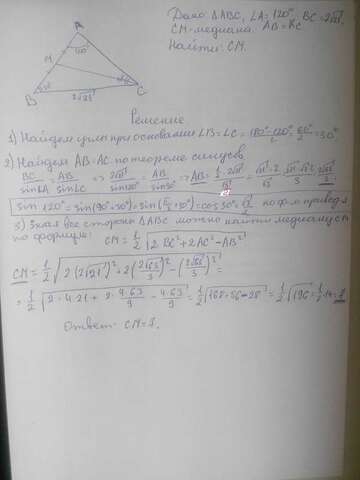 A
120°
M
B
C
2√21
Дано: ΔABC, ∠A=120°, BC=2√21
CM-медиана. AB=AC
Найти: CM.
Решение
1) Найдем углы при основании ∠B=∠C= (180°-120°)/2 = 60°/2 = 30°
2) Найдем AB=AC по теореме синусов
BC/sin∠A = AB/sin∠C => 2√21/sin120° = AB/sin30° => AB=
sin 120°=sin(90°+30°)=sin(π/2+30°)=cos30°=√3/2 по ф-м привед
3) Зная все стороны ΔABC можно найти медиану CM
по формуле:
CM=1/2 √(2BC²+2AC²-AB²)
CM=1/2 √(2(2√21)²+2(2√63/3)²-(2√63/3)²) =
=1/2 √(2·4·21+2·4·63/9-4·63/9) =1/2 √(168+56-28) =1/2 √196 =1/2·14=7
Ответ: CM=7.